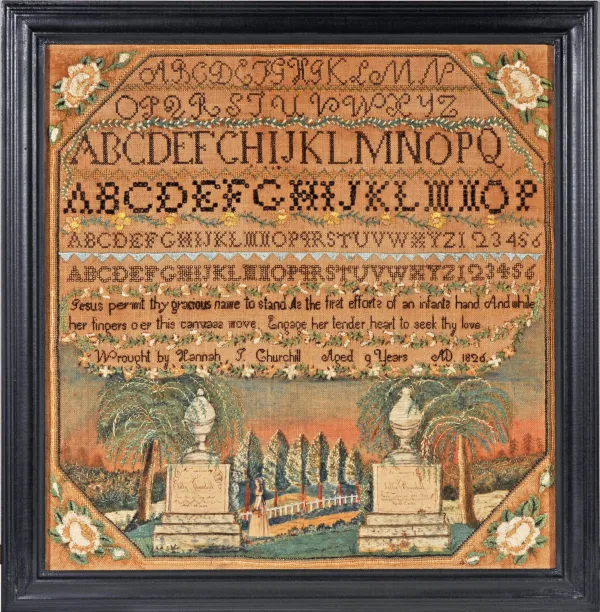 ABCDEFGHIJKLMN
OPQRSTUVWXYZ
ABCDEFGHIJKLMNOPQ
ABCDEFGHIJKLMNOP
ABCDEFGHIJKLMNOPQRSTUVWXYZ123456
ABCDEFGHIJKLMNOPQRSTUVWXYZ123456
Jesus permit thy gracious name to stand As the first efforts of an infants hand And while
her fingers oer this canvass move Engage her tender heart to seek thy love
Wrought by Hannah J. Churchill Aged 9 Years AD. 1826.